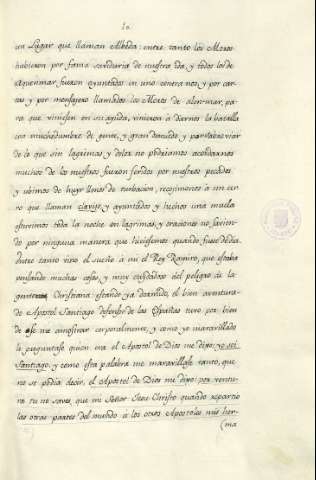 10
un Lugar que llaman Albeda: entre tanto los Moros
hubieron por fama sabiduria de nuestra ida, y todos los de
Aquenmar, fueron ayuntados en uno contra nos, y por car
tas y por mensageros llamados los Moros de alenmar, pa
ra que viniesen en su ayuda, vinieron á darnos la batalla
con muchedumbre de gente, y gran denuedo, y
de lo que sin lagrimas y dolor no podriamos acordarnos
muchos de los nuestros fueron feridos por nuestros pecados
y obimos de huyr llenos de turbacion, recojimonos á un cer
ro que llaman clavijo, y ayuntados y hechos una muela
estuvimos toda la noche en lagrimas, y oraciones no savien
do por ninguna manera que hiciesemos quando fuese de dia.
Entre tanto vino el sueño á mi el Rey Ramiro, que estaba
pensando muchas cosas, y muy cuidadoso del peligro de la
gente Christiana: estando ya dormido, el bien aventura-
do Apostol Santiago defensor de las Españas tuvo por bien
de se me amostrar corporalmente, y como yo maravillado
le preguntase quien era el Apostol de Dios me dijo: yo soi
Santiago, y como esta palabra me maravillase tanto, que
no se podia decir, el Apostol de Dios me dijo: por ventu
ra tu no saves, que mi Señor Jesu Christo quando repartio
las otras partes del mundo á los otros Apostoles mis her-
(ma